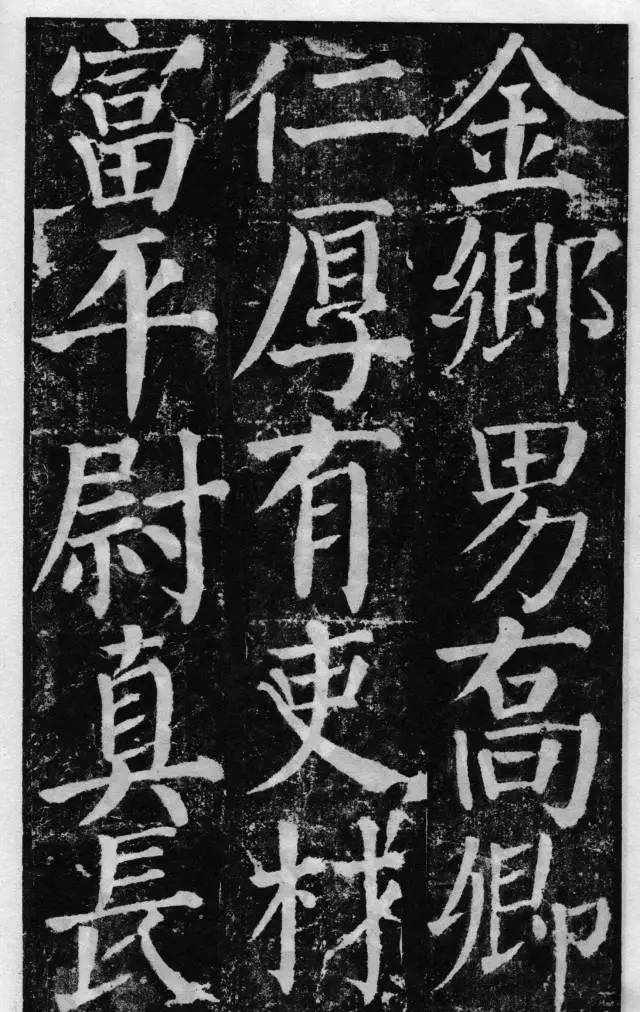 金鄉男髙卿
仁厚有吏材
富平尉真長